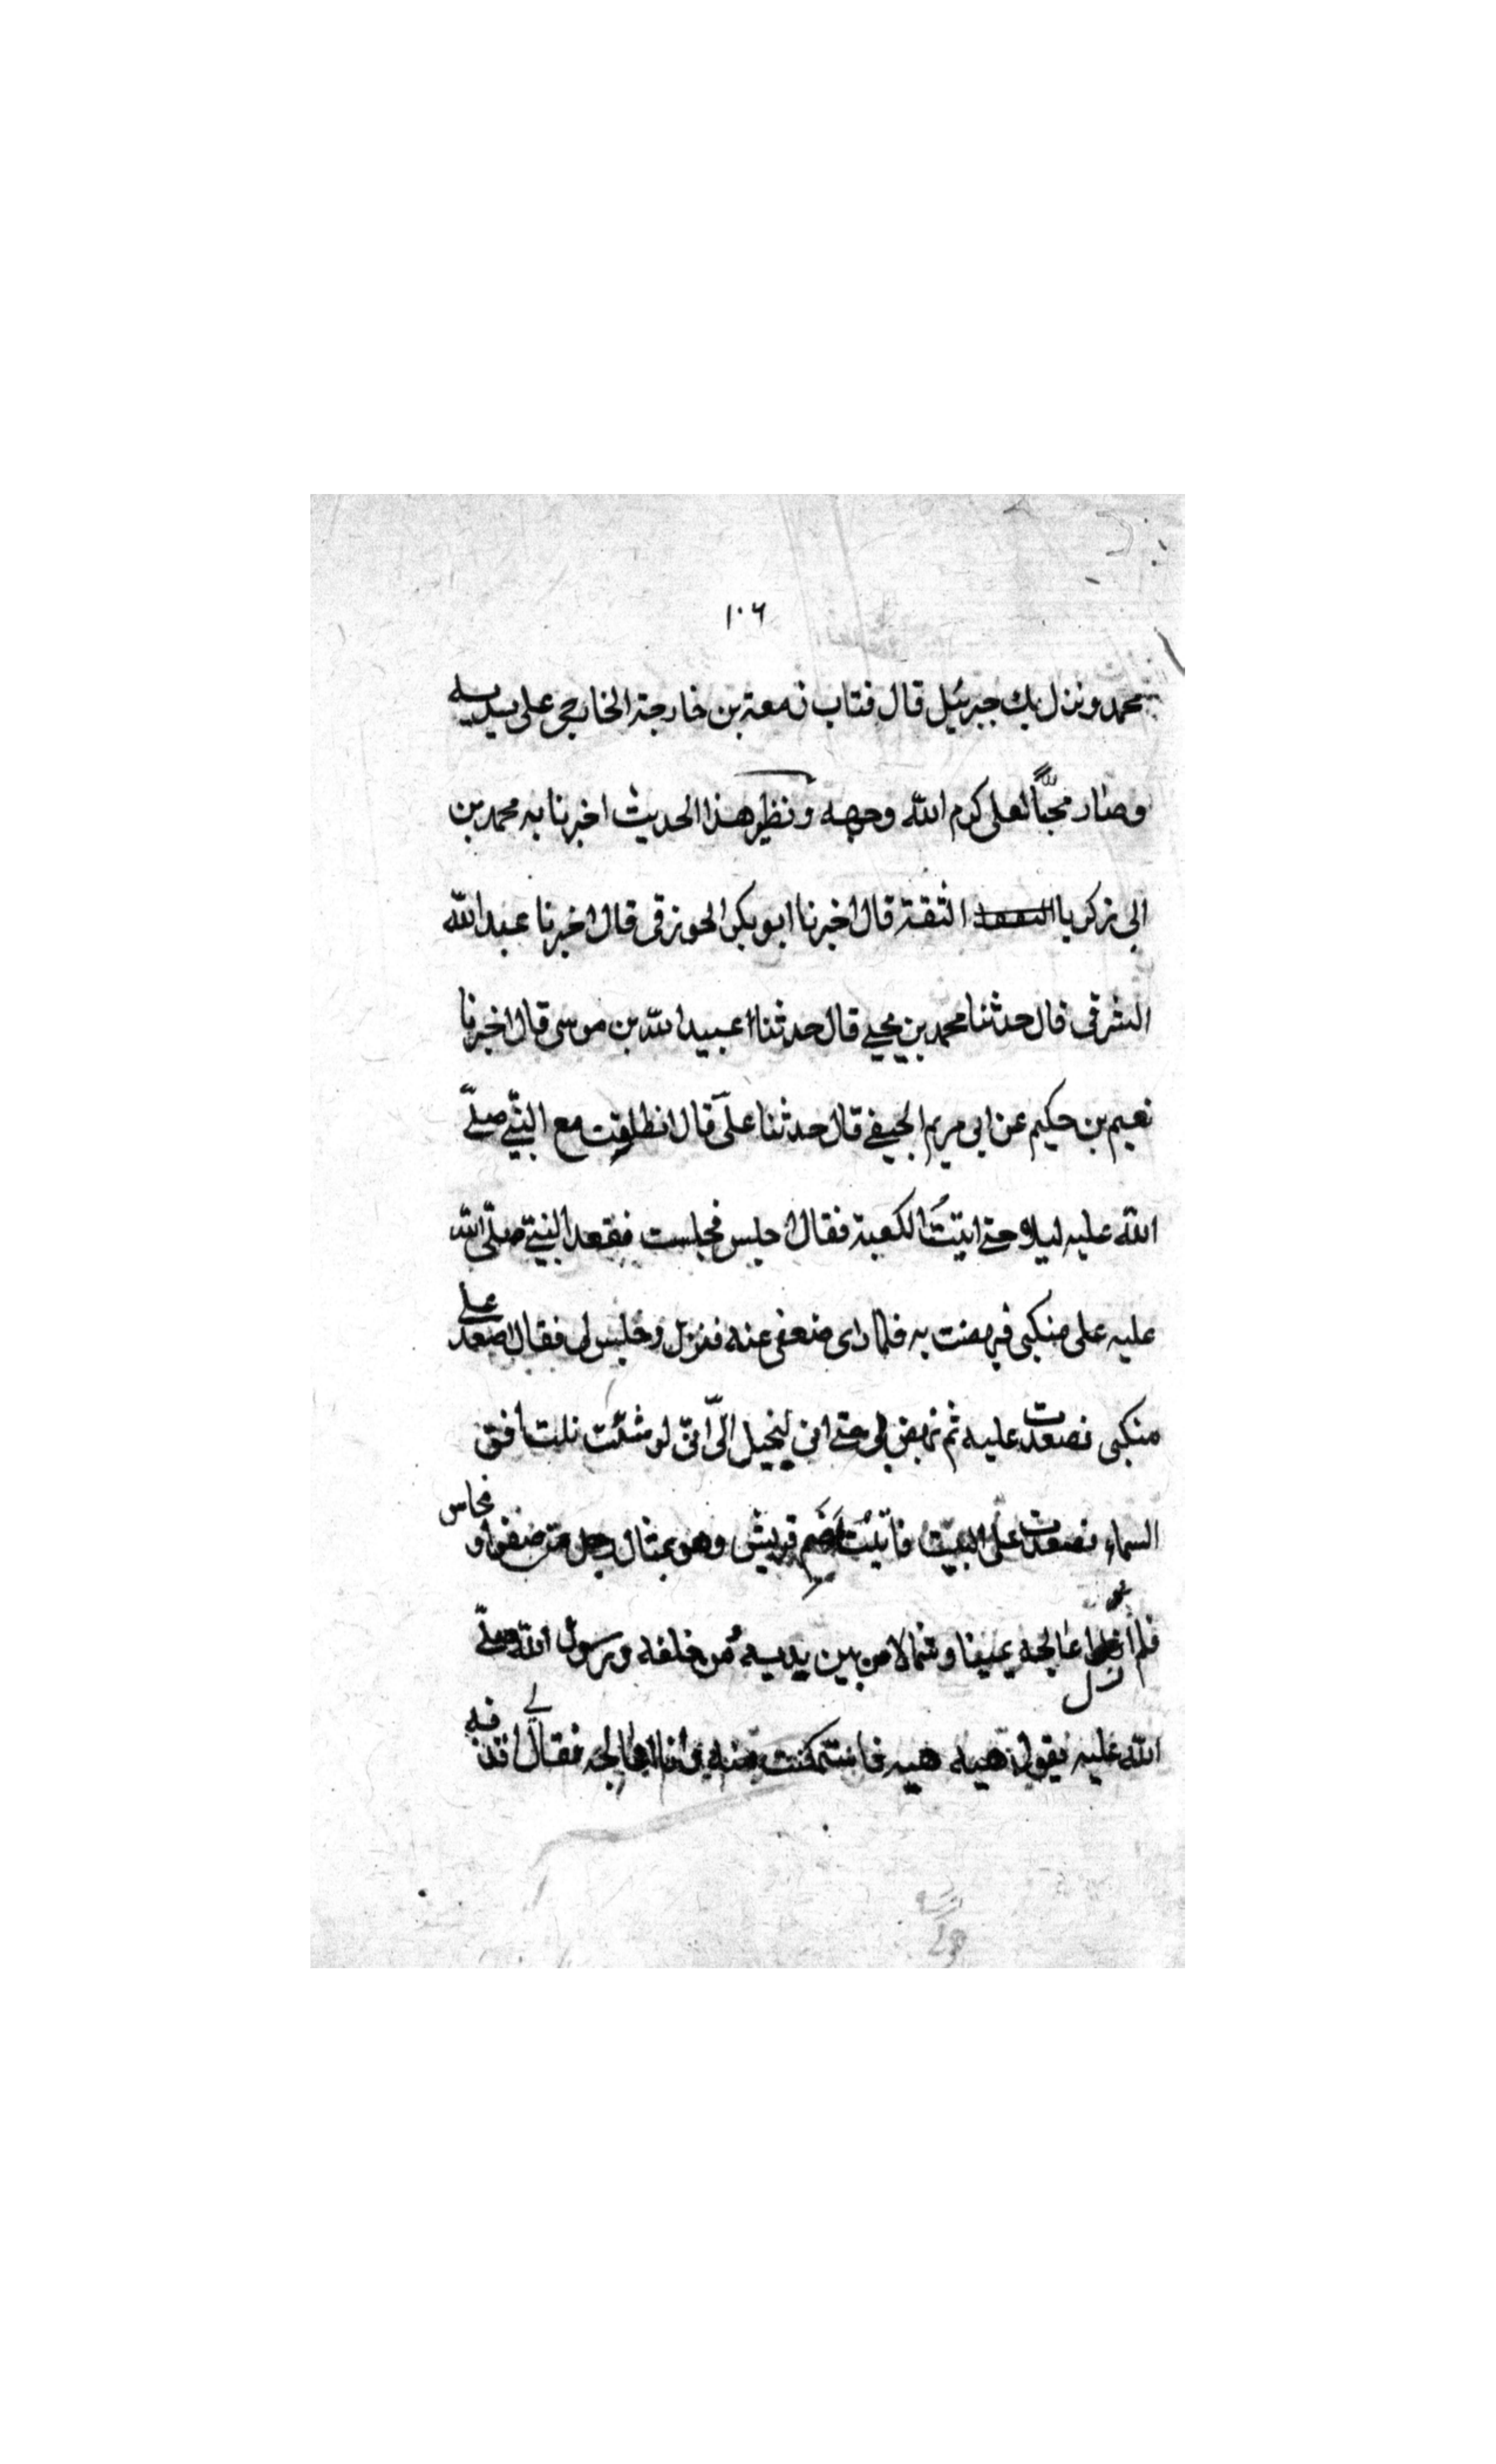 ١٠٦
محمد ونزل بك جبرئيل قال فتاب زمعة بن خارجة الخارجى على يديه
وصار محبّاً لعلى كرم الله وجهه ونظير هذا الحديث اخبرنا به محمد بن
ابى زكريا الثقة قال اخبرنا ابو بكر الحوزقى قال اخبرنا عبد الله
الشرقى قال حدثنا محمد بن يحيى قال حدثنا عبيد الله بن موسى قال اخبرنا
نعيم بن حكيم عن ابى مريم الحيفى قال حدثنا علىّ قال انطلقت مع النبىّ صلّى
الله عليه ليلا حتى اتيتُ الكعبة فقال اجلس فجلست فقعد النبىّ صلّى الله
عليه على منكبى فنهضت به فلما راى ضعفى عنه فنزل وجلس لى فقال اصعد على
منكبى فصعدت عليه ثم نهض بى حتى انى ليخيل الىّ انّى لو شئت نلت افق
السماء فصعدت على البيت فاتيت صنم قريش وهو بمثال رجل من صفر او نحاس
فلم ازل اعالجه يمينا وشمالا من بين يديه ومن خلفه ورسول الله صلّى
الله عليه يقول هيه هيه فاستمكنت منه وانا اعالجه فقال لى اقذفه